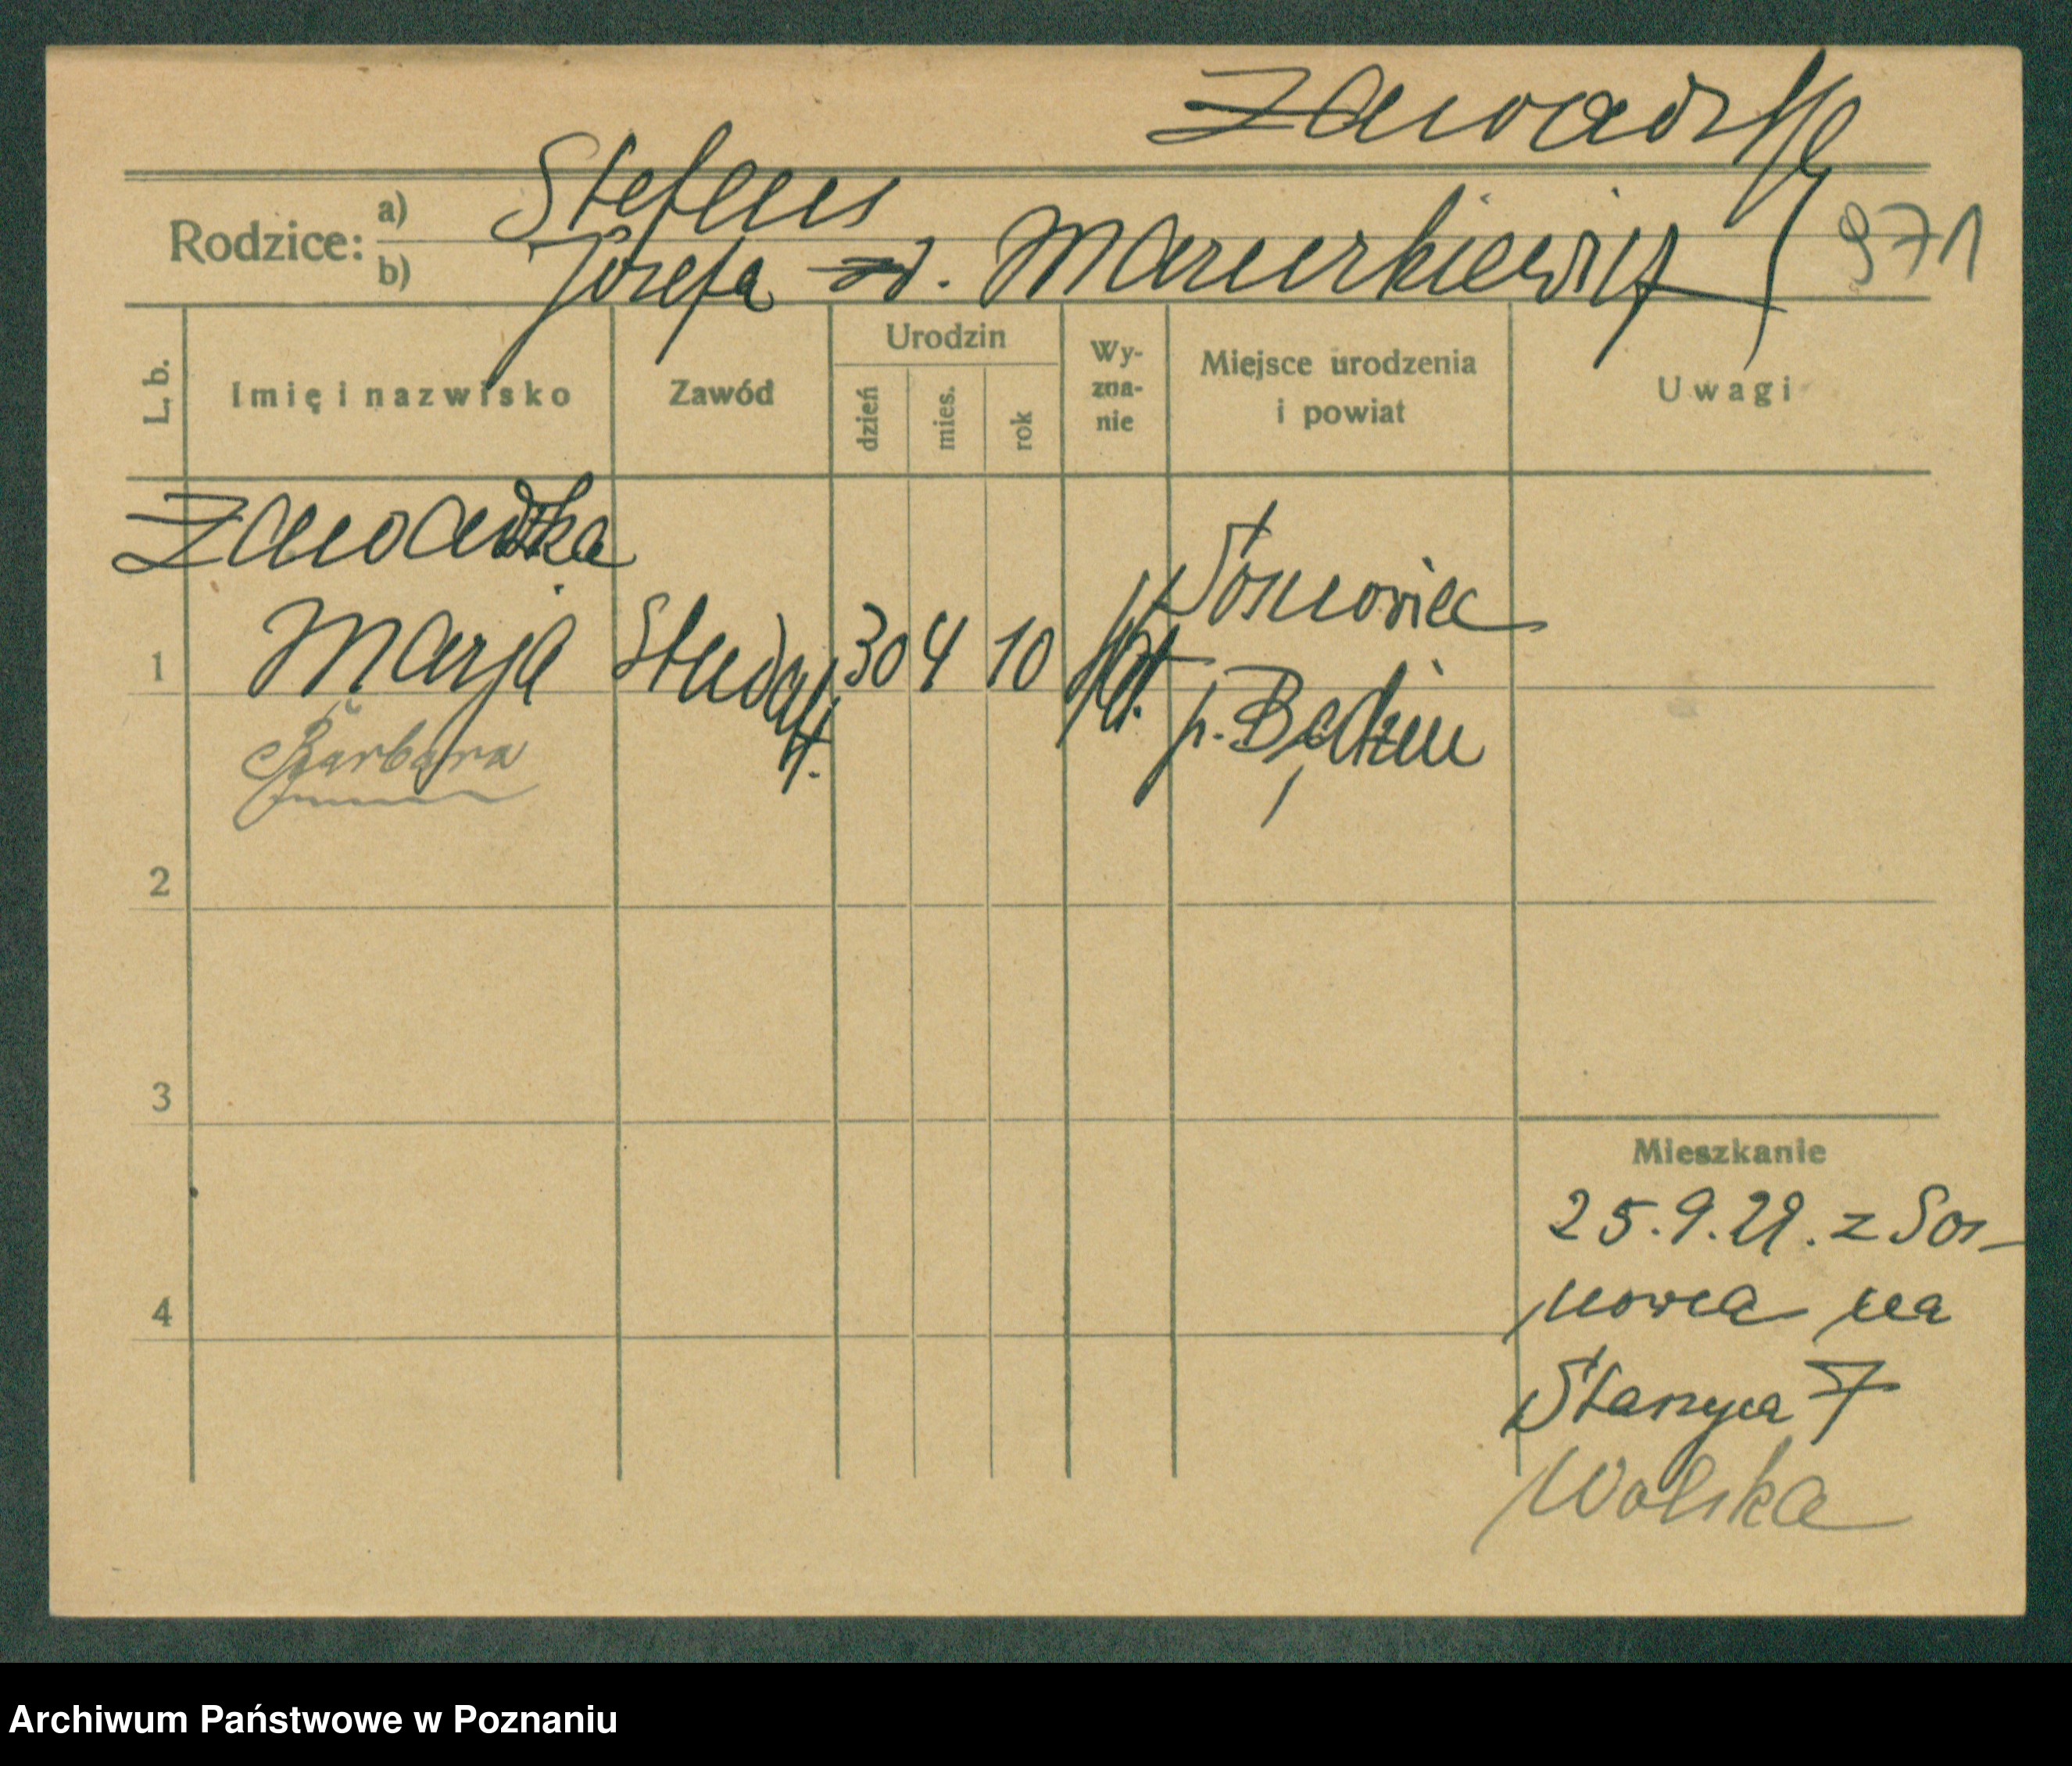 Zawadzka
Rodzice: a) Stefan
b) Józefa d. Mazurkiewicz
971
L. b.
Imię i nazwisko
Zawód
Urodzin
dzień
mies.
rok
Wy-
zna-
nie
Miejsce urodzenia
i powiat
Uwagi
Zawadzka
1 Marja
Barbara
Student.
30 4 10
Sosnowiec
p. Będzin
2
3
4
Mieszkanie
25.9.29. z Sos-
nowca na
Staszyca 7
Wolska
Archiwum Państwowe w Poznaniu